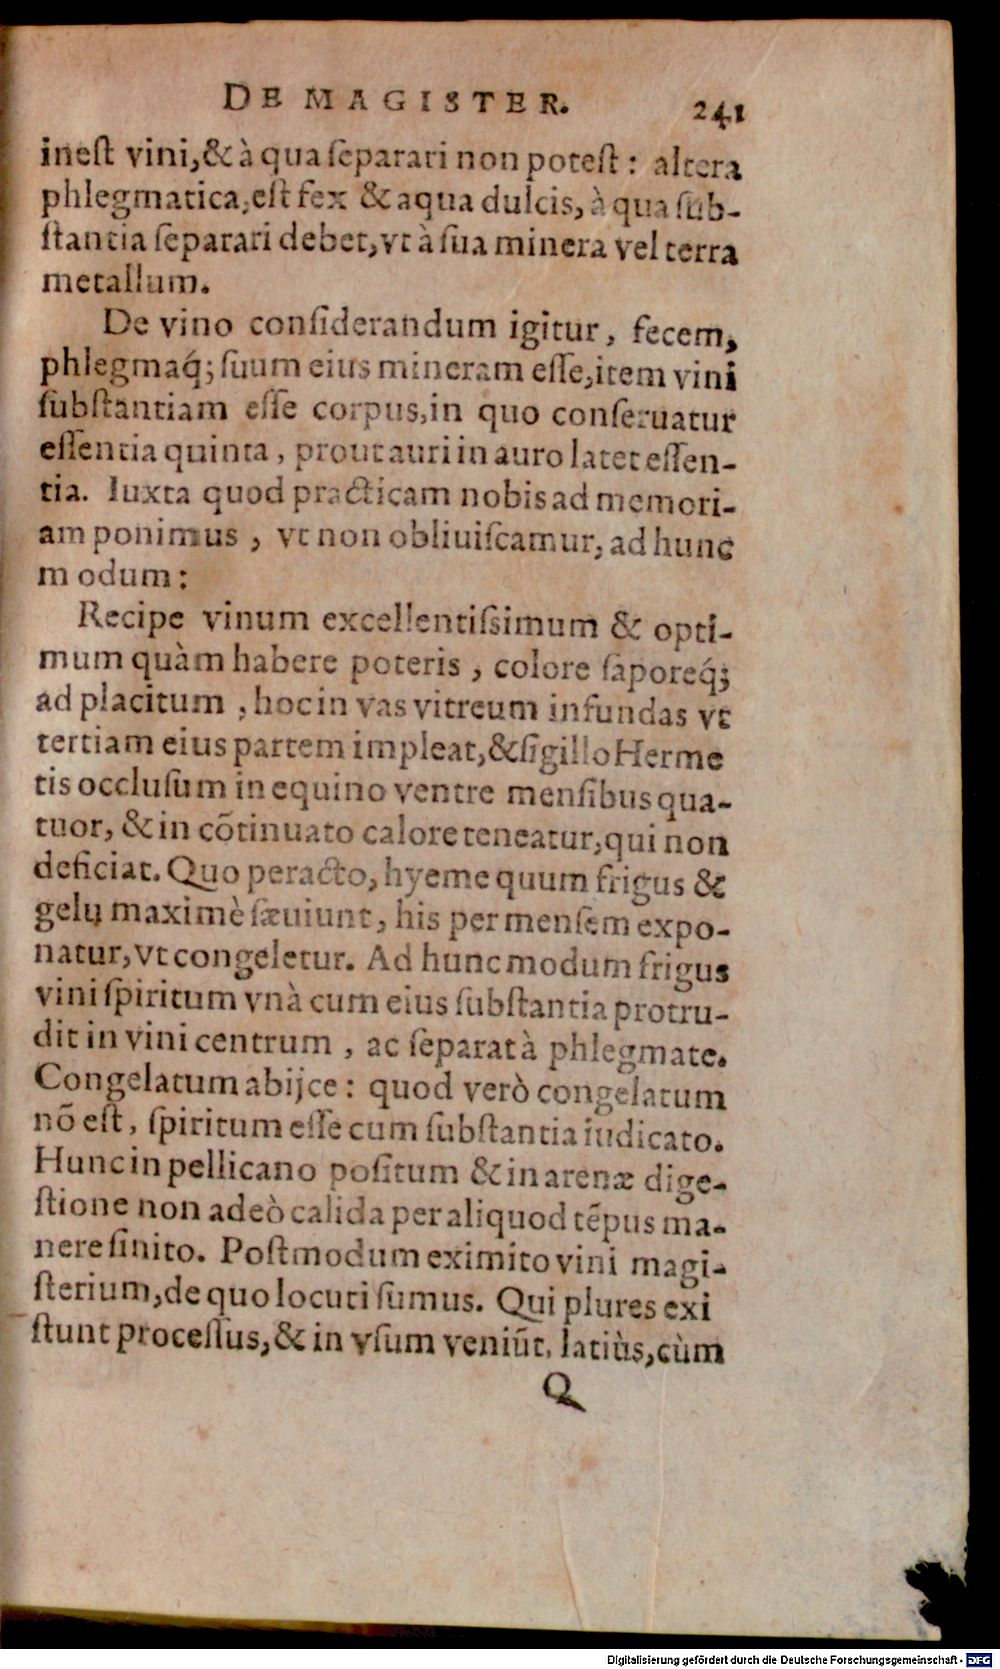 DE MAGISTER. 241
inest vini, & à qua separari non potest: altera
phlegmatica, est fex & aqua dulcis, à qua sub-
stantia separari debet, vt à sua minera vel terra
metallum.
De vino considerandum igitur, fecem,
phlegmaq́; suum eius mineram esse, item vini
substantiam esse corpus, in quo conseruatur
essentia quinta, prout auri in auro latet essen-
tia. Iuxta quod practicam nobis ad memori-
am ponimus, vt non obliuiscamur, ad hunc
modum:
Recipe vinum excellentissimum & opti-
mum quàm habere poteris, colore saporeq́;
ad placitum, hoc in vas vitreum infundas vt
tertiam eius partem impleat, & sigillo Herme
tis occlusum in equino ventre mensibus qua-
tuor, & in cõtinuato calore teneatur, qui non
deficiat. Quo peracto, hyeme quum frigus &
gelu maximè sæuiunt, his per mensem expo-
natur, vt congeletur. Ad hunc modum frigus
vini spiritum vnà cum eius substantia protru-
dit in vini centrum, ac separat à phlegmate.
Congelatum abijce: quod verò congelatum
nõ est, spiritum esse cum substantia iudicato.
Hunc in pellicano positum & in arenæ dige-
stione non adeò calida per aliquod tẽpus ma-
nere sinito. Postmodum eximito vini magi-
sterium, de quo locuti sumus. Qui plures exi
stunt processus, & in vsum veniũt, latiùs, cùm
Q
Digitalisierung gefördert durch die Deutsche Forschungsgemeinschaft - DFG